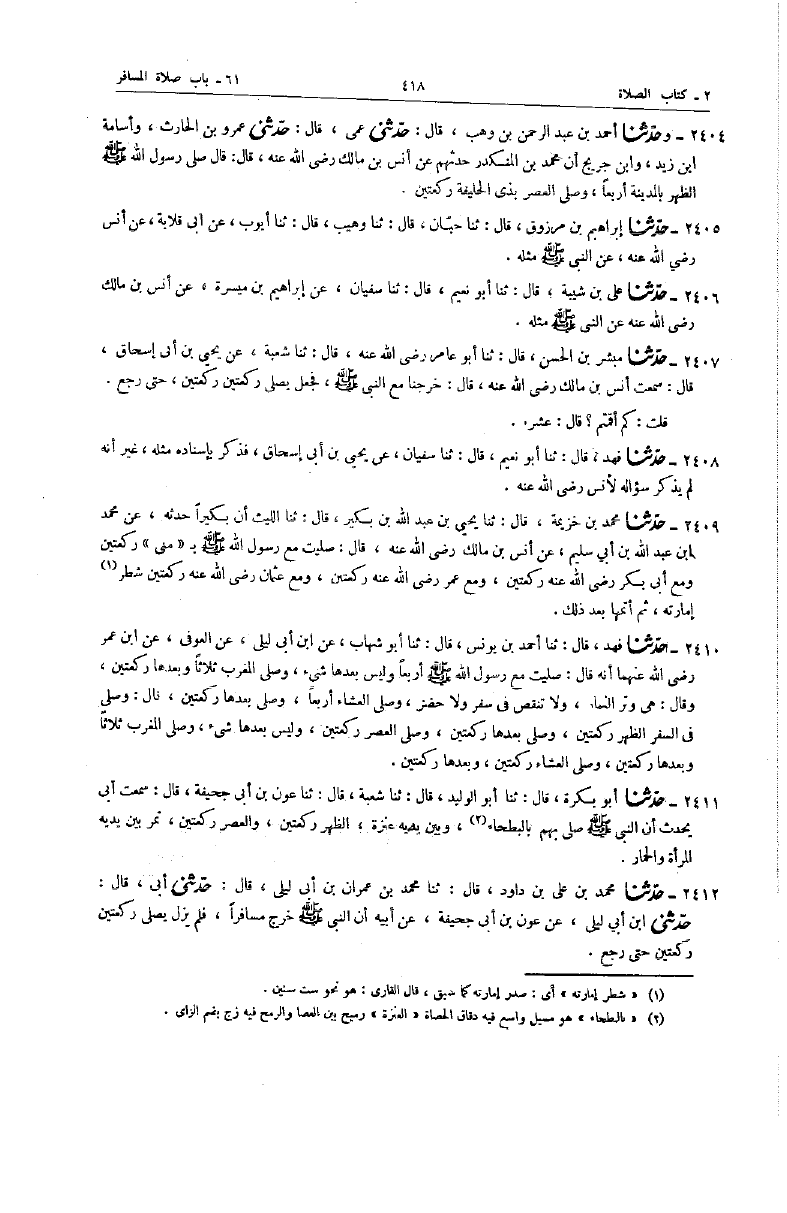 ٢ ـ كتاب الصلاة ٤١٨ ٦١ ـ باب صلاة المسافر
٢٤٠٤ ـ وحدثنا أحمد بن عبد الرحمن بن وهب ، قال : حدثني عمى ، قال : حدثني عمرو بن الحارث ، وأسامة
ابن زيد ، وابن جريج أن محمد بن المنكدر حدثهم عن أنس بن مالك رضى الله عنه ، قال: قال صلى رسول الله ﷺ
الظهر بالمدينة أربعاً ، وصلى العصر بذى الحليفة ركعتين .
٢٤٠٥ ـ حدثنا إبراهيم بن مرزوق ، قال : ثنا حبّان ، قال : ثنا وهيب ، قال : ثنا أيوب ، عن أبى قلابة ، عن أنس
رضي الله عنه ، عن النبي ﷺ مثله .
٢٤٠٦ ـ حدثنا على بن شيبة ، قال : ثنا أبو نعيم ، قال : ثنا سفيان ، عن إبراهيم بن ميسرة ، عن أنس بن مالك
رضى الله عنه عن النبي ﷺ مثله .
٢٤٠٧ ـ حدثنا مبشر بن الحسن ، قال : ثنا أبو عامر رضى الله عنه ، قال : ثنا شعبة ، عن يحيى بن أبى إسحاق ،
قال : سمعت أنس بن مالك رضى الله عنه ، قال : خرجنا مع النبي ﷺ ، فجعل يصلى ركعتين ركعتين ، حتى رجع .
قلت : كم أقمتم ؟ قال : عشراً .
٢٤٠٨ ـ حدثنا فهد ، قال : ثنا أبو نعيم ، قال : ثنا سفيان ، عن يحيى بن أبى إسحاق ، فذكر بإسناده مثله ، غير أنه
لم يذكر سؤاله لأنس رضى الله عنه .
٢٤٠٩ ـ حدثنا محمد بن خزيمة ، قال : ثنا يحيى بن عبد الله بن بكير ، قال : ثنا الليث أن بكيراً حدثه ، عن محمد
ابن عبد الله بن أبي سليم ، عن أنس بن مالك رضى الله عنه ، قال : صليت مع رسول الله ﷺ بـ « منى » ركعتين
ومع أبى بكر رضى الله عنه ركعتين ، ومع عمر رضى الله عنه ركعتين ، ومع عثمان رضى الله عنه ركعتين شطر (١)
إمارته ، ثم أتمها بعد ذلك .
٢٤١٠ ـ حدثنا فهد ، قال : ثنا أحمد بن يونس ، قال : ثنا أبو شهاب ، عن ابن أبى ليلى ، عن العوفى ، عن ابن عمر
رضى الله عنهما أنه قال : صليت مع رسول الله ﷺ أربعاً وليس بعدها شىء ، وصلى المغرب ثلاثاً وبعدها ركعتين ،
وقال : هى وتر النهار ، ولا تنقص فى سفر ولا حضر ، وصلى العشاء أربعاً ، وصلى بعدها ركعتين ، قال : وصلى
فى السفر الظهر ركعتين ، وصلى بعدها ركعتين ، وصلى العصر ركعتين ، وليس بعدها شىء ، وصلى المغرب ثلاثاً
وبعدها ركعتين ، وصلى العشاء ركعتين ، وبعدها ركعتين .
٢٤١١ ـ حدثنا أبو بكرة ، قال : ثنا أبو الوليد ، قال : ثنا شعبة ، قال : ثنا عون بن أبى جحيفة ، قال : سمعت أبى
يحدث أن النبي ﷺ صلى بهم بالبطحاء(٢) ، وبين يديه عنزة ، الظهر ركعتين ، والعصر ركعتين ، تمر بين يديه
المرأة والحمار .
٢٤١٢ ـ حدثنا محمد بن على بن داود ، قال : ثنا محمد بن عمران بن أبى ليلى ، قال : حدثني أبى ، قال :
حدثني ابن أبي ليلى ، عن عون بن أبى جحيفة ، عن أبيه أن النبي ﷺ خرج مسافراً ، فلم يزل يصلى ركعتين
ركعتين حتى رجع .
(١) « شطر إمارته » أى : صدر إمارته كما سبق ، قال القارى : هو نحو ست سنين .
(٢) « بالبطحاء » هو مسيل واسع فيه دقاق الحصاة « العنزة » رميح بين العصا والرمح فيه زج بضم الزاى .